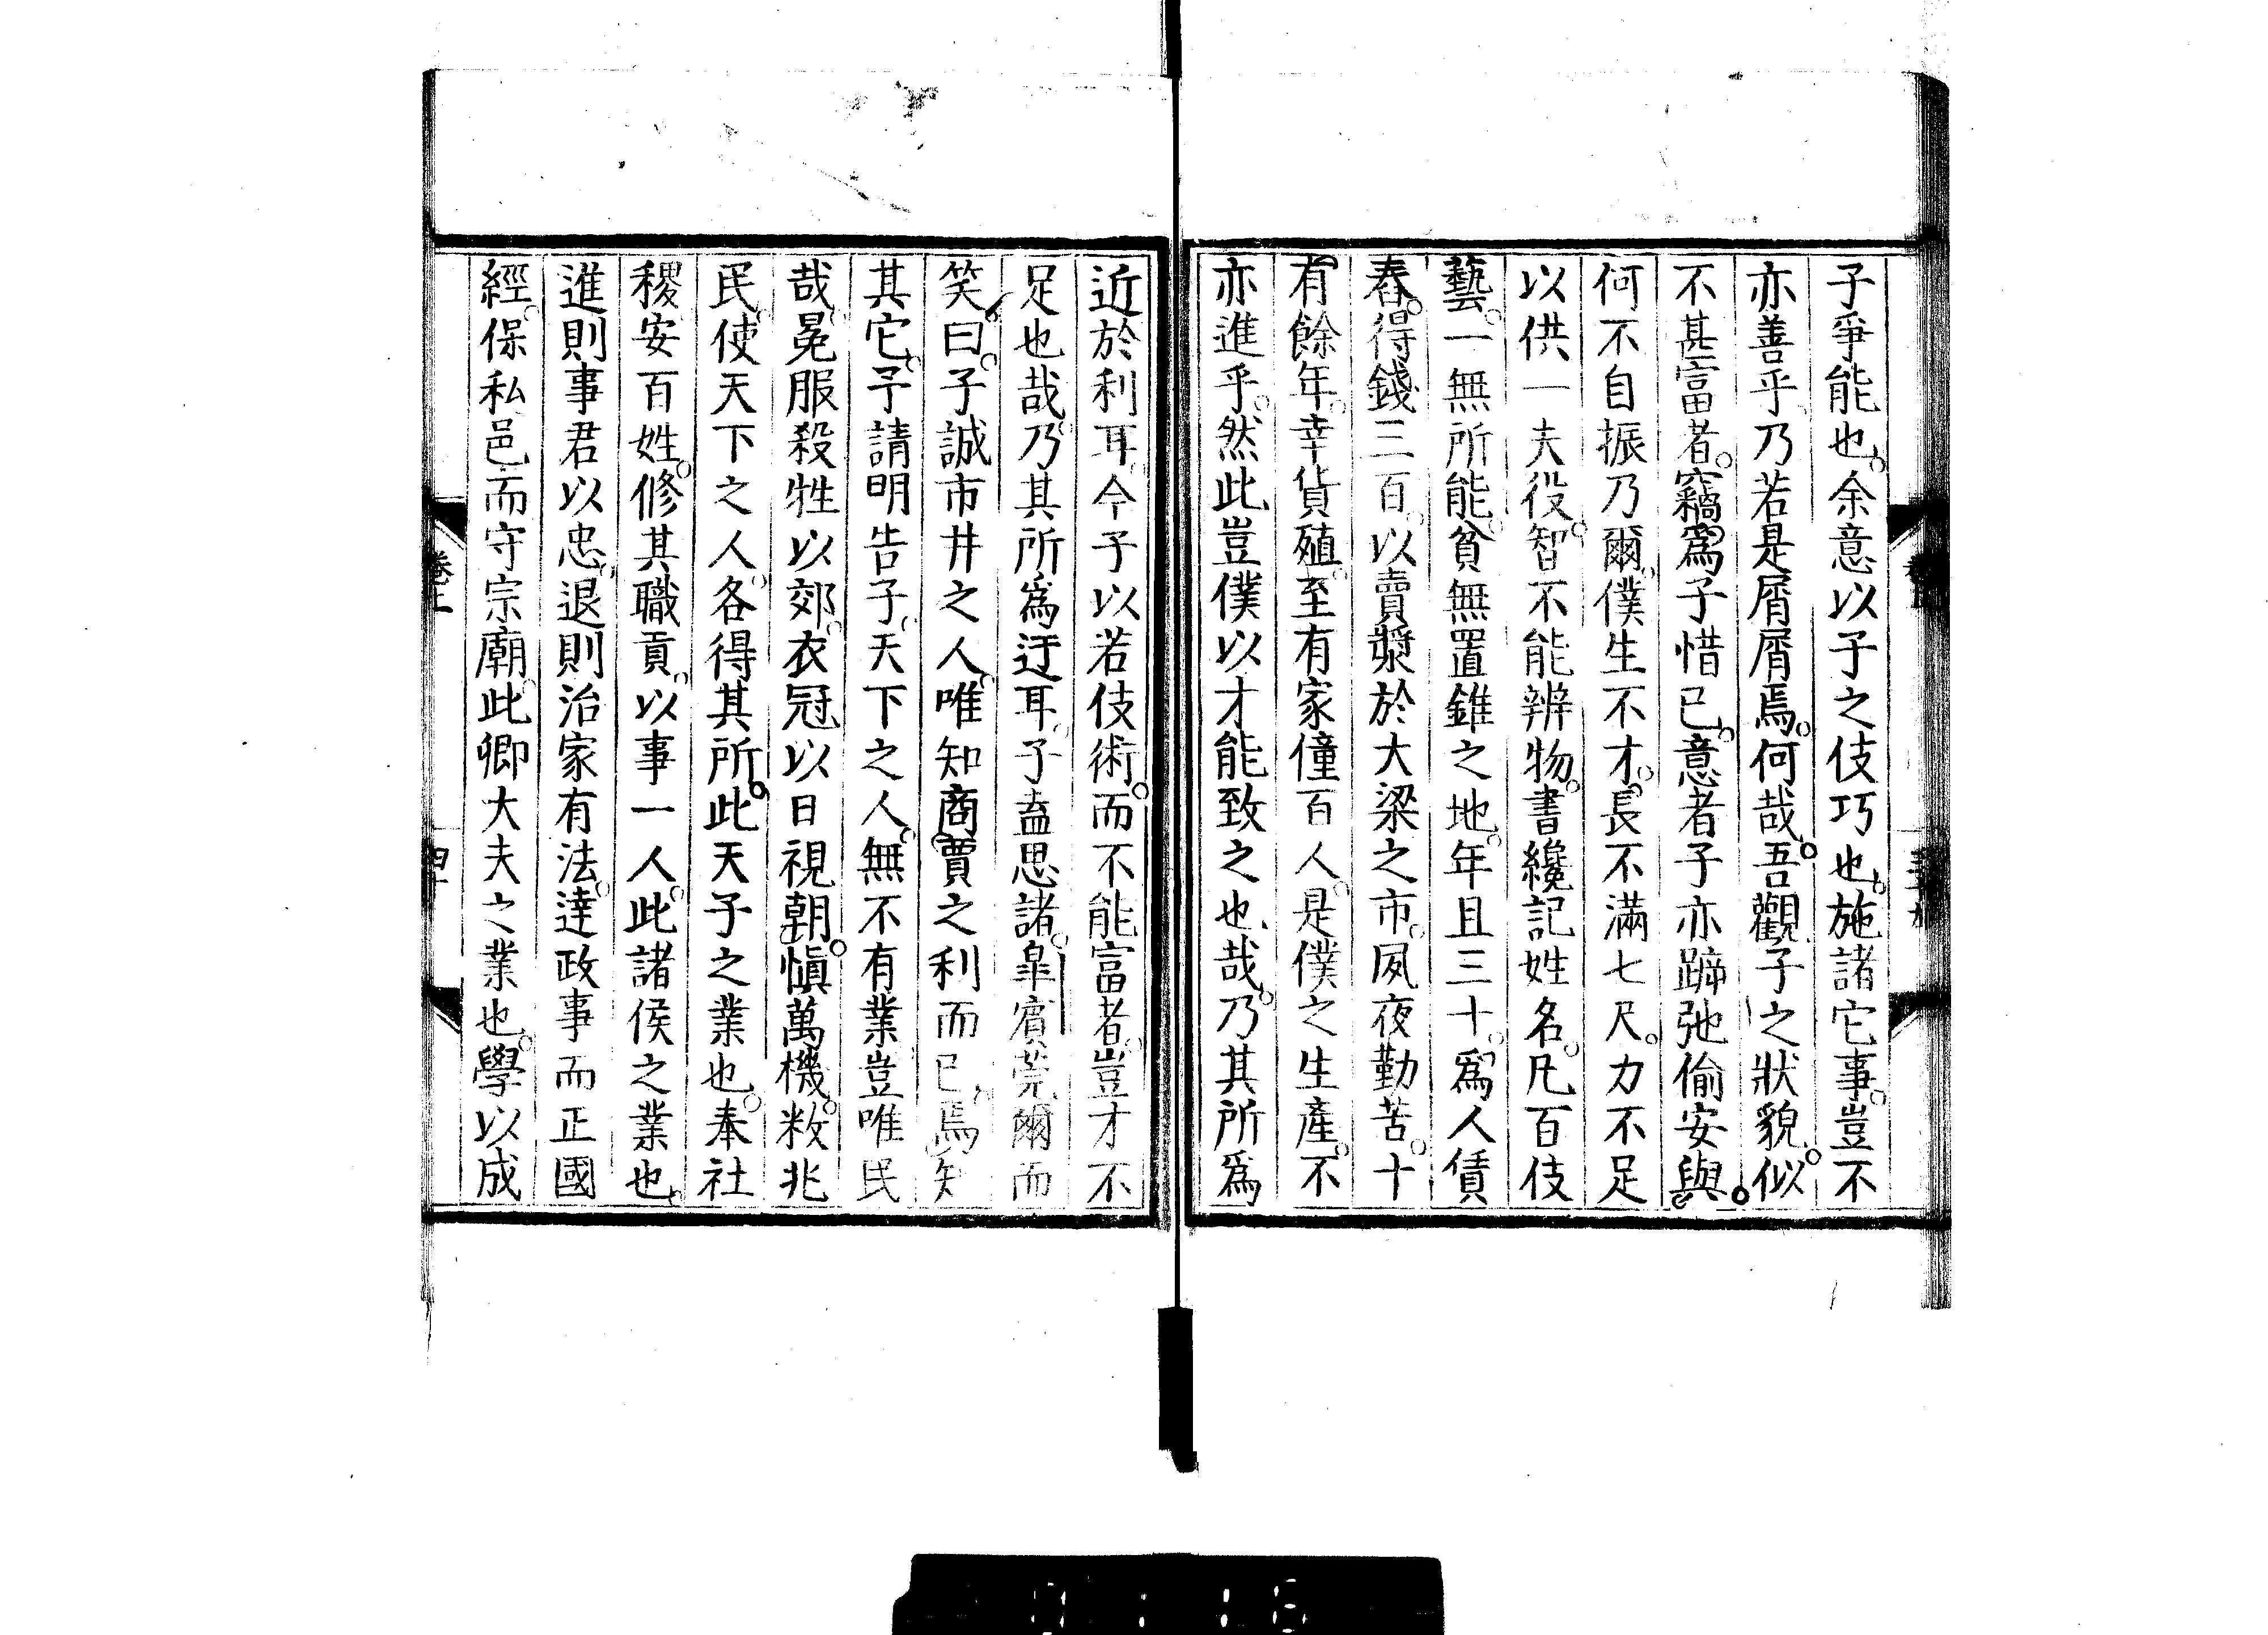 子爭能也余意以子之伎巧也施諸它事豈不
亦善乎乃若是屑屑焉何哉吾觀子之狀貌似
不甚富者竊爲子惜已意者子亦跡弛偷安與
何不自振乃爾僕生不才長不滿七尺力不足
以供一夫役智不能辨物書纔記姓名凡百伎
藝一無所能貧無置錐之地年且三十爲人賃
舂得錢三百以賣漿於大梁之市夙夜勤苦十
有餘年幸貨殖至有家僮百人是僕之生產不
亦進乎然此豈僕以才能致之也哉乃其所爲
近於利耳今子以若伎術而不能富者豈才不
足也哉乃其所爲迂耳子盍思諸皐賓莞爾而
笑曰子誠市井之人唯知商賈之利而已焉知
其它予請明告子夫天下之人無不有業豈唯民
哉冕服殺牲以郊衣冠以日視朝愼萬機敉兆
民使天下之人各得其所此天子之業也奉社
稷安百姓修其職貢以事一人此諸侯之業也
進則事君以忠退則治家有法達政事而正國
經保私邑而守宗廟此卿大夫之業也學以成
卷上
四十